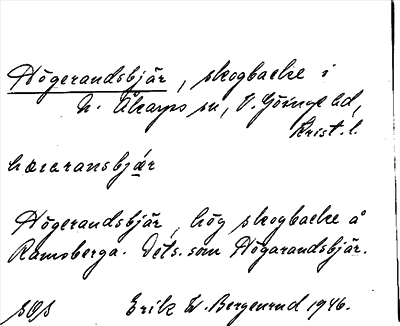 Högerandsbjär, skogbacke i
N. Åkarps sn, V. Göinge hd,
Krist. l.
hæuaransbjär
Högerandsbjär, hög skogbacke å
Ramsberga. Dets. som Högarandsbjär.
SOS Erik W. Bergenrud 1946.